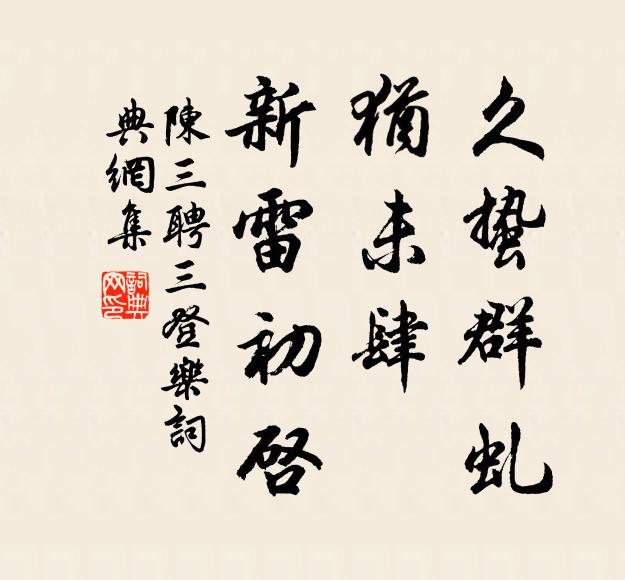 久蟄群虬
猶未肆
新雷初啓
陳三聘三登樂詞
典網集
詞典
网印